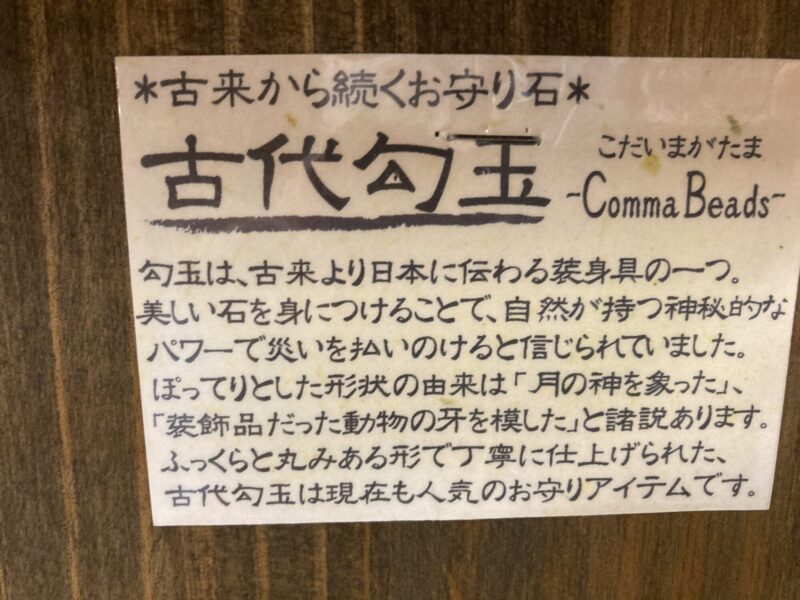 *古来から続くお守り石*
こだいまがたま
古代勾玉 -Comma Beads-
勾玉は、古来より日本に伝わる装身具の一つ。
美しい石を身につけることで、自然が持つ神秘的な
パワーで災いを払いのけると信じられていました。
ぽってりとした形状の由来は「月の神を象った」、
「装飾品だった動物の牙を模した」と諸説あります。
ふっくらと丸みある形で丁寧に仕上げられた、
古代勾玉は現在も人気のお守りアイテムです。